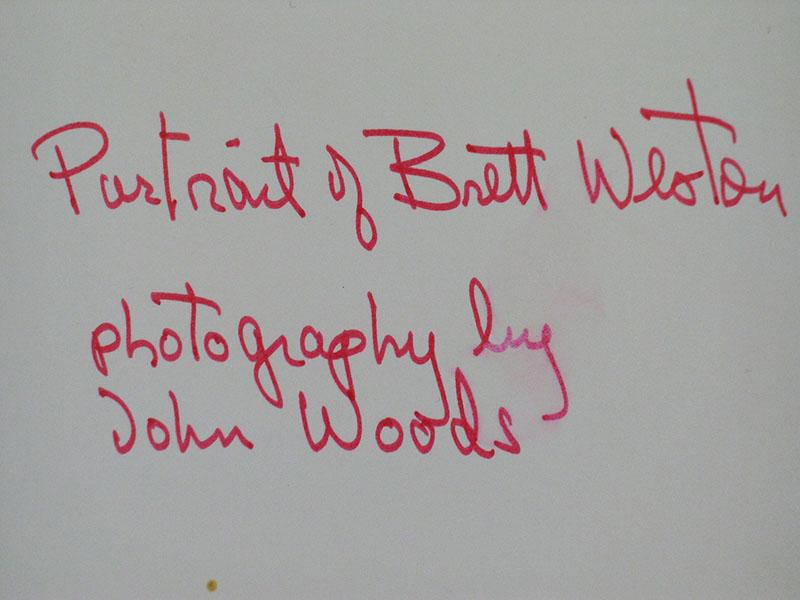 Portrait of Brett Weston
photography by
John Woods